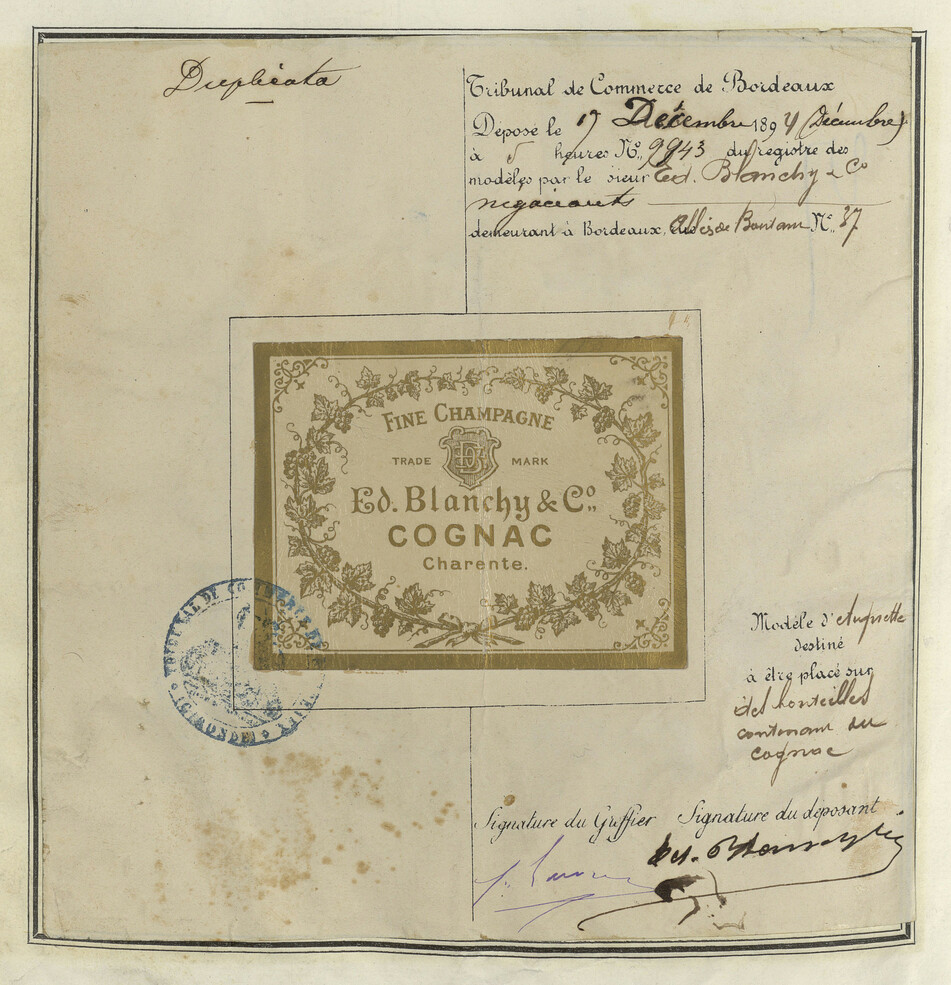 Duplicata
Tribunal de Commerce de Bordeaux
Déposé le 17 Décembre 1894 (Décembre)
à 5 heures No. 9943 du registre des
modèles par le sieur Ed. Blanchy & Co
négociants
demeurant à Bordeaux, de No. 37
FINE CHAMPAGNE
TRADE MARK
Ed. Blanchy & Co.
COGNAC
Charente.
TRIBUNAL DE COMMERCE DE
Modèle d'étiquette
destiné
à être placé sur
des bouteilles
contenant du
cognac
Signature du Greffier Signature du déposant
Ed. Blanchy & Co